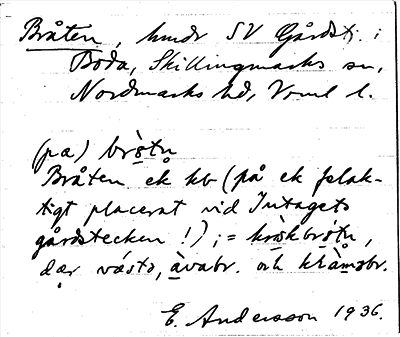 Bråten, hmdr SV Gårdstj. i
Boda, Skillingmarks sn,
Nordmarks hd, Vrml l.
(pa) bròtn
Bråten ek kb (på ek felak-
tigt placerat vid Intagets
gårdstecken!); = kròkbròtn,
där västo, àvabr. och klàmsbr.
E. Andersson 1936.